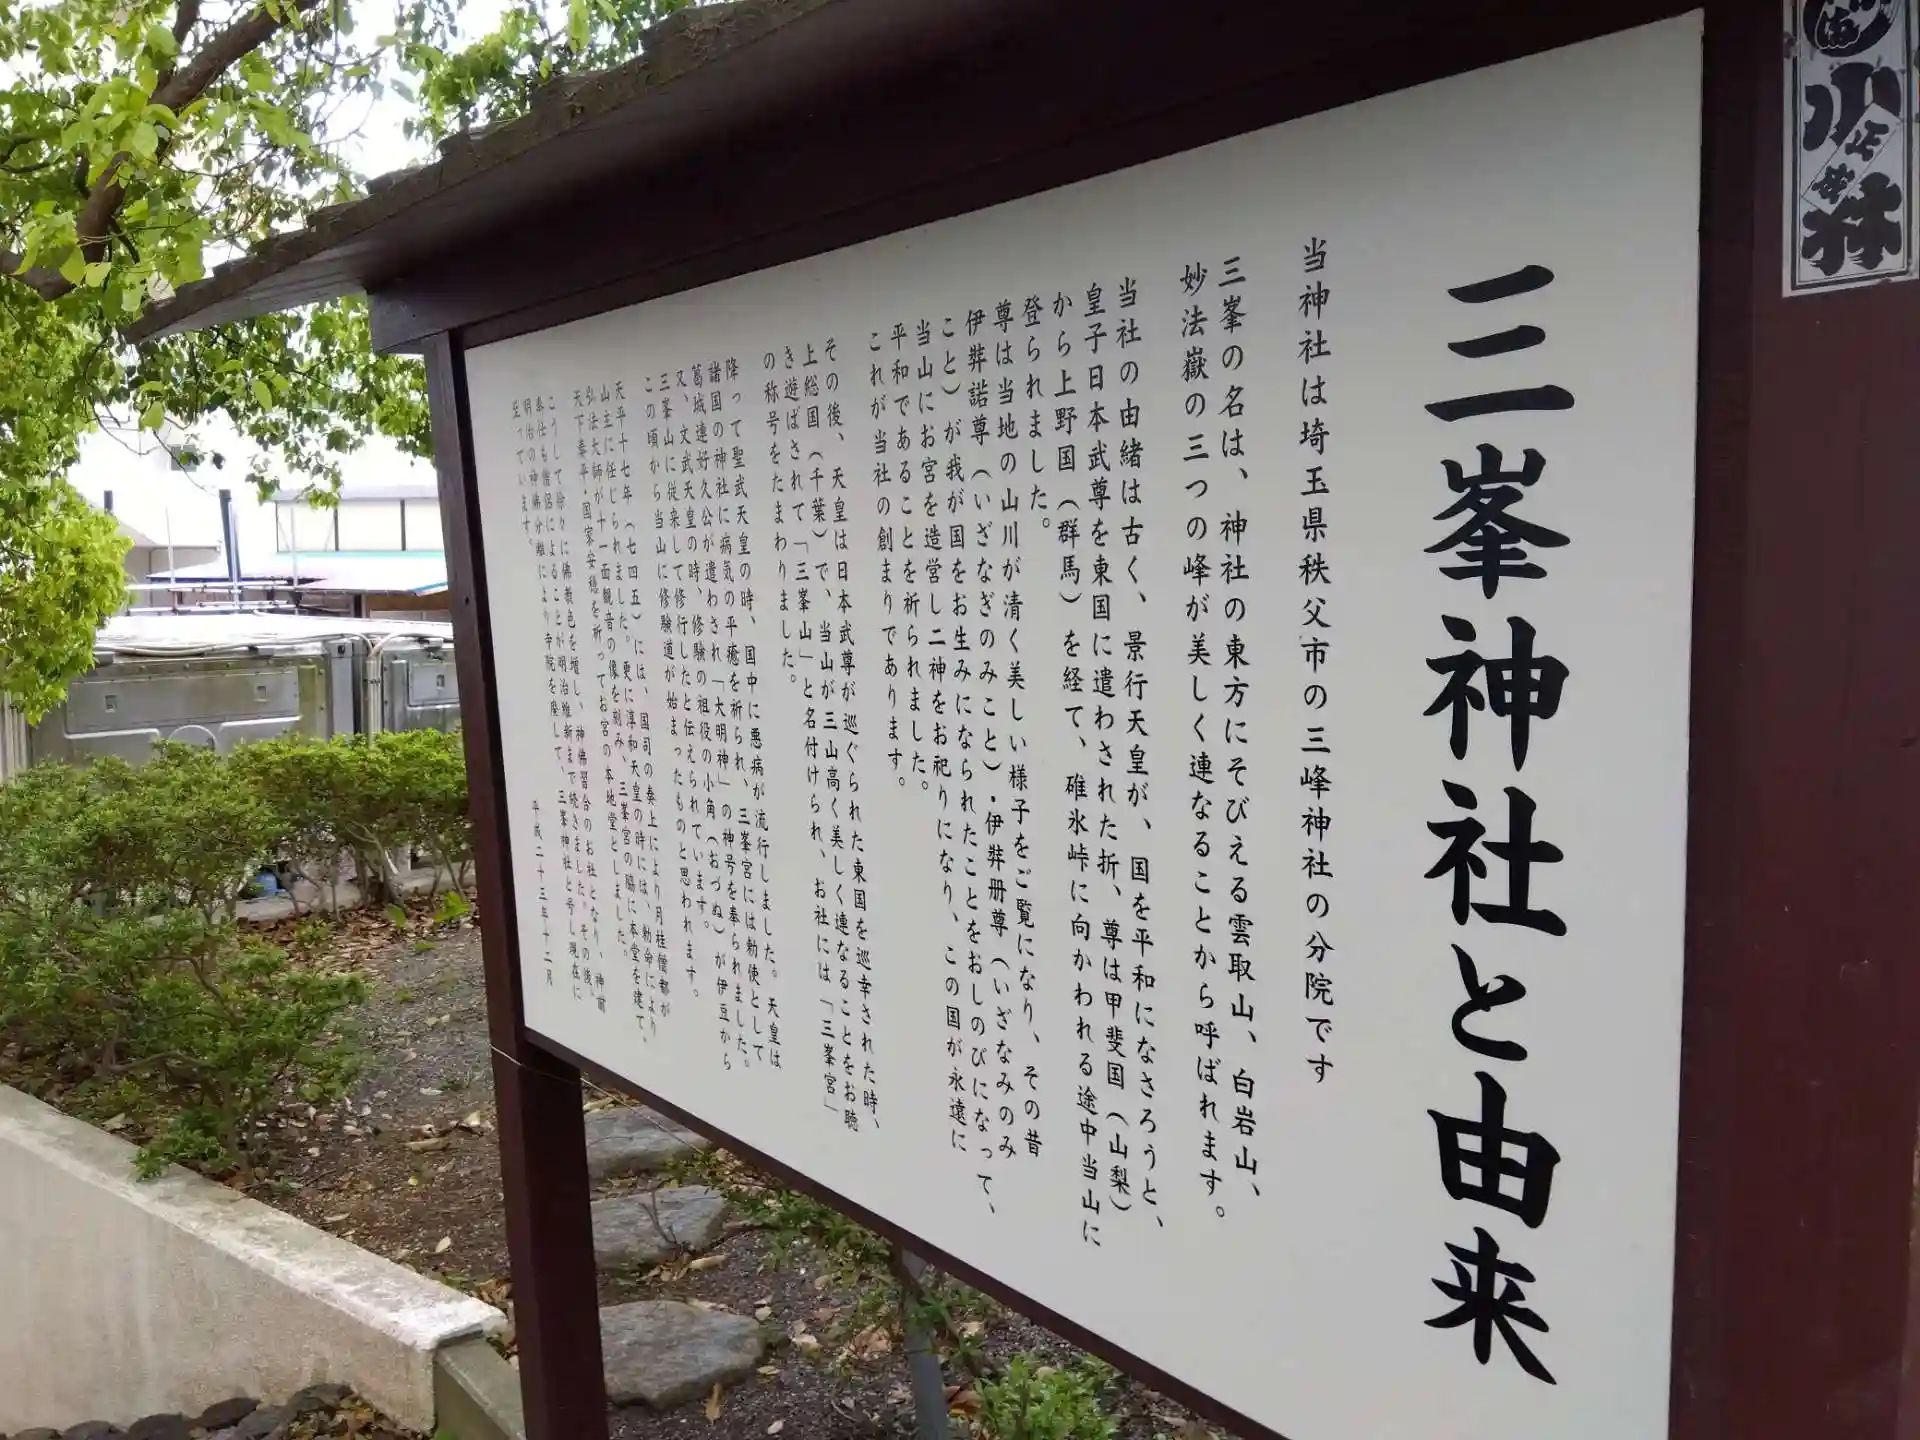 小林
三峯神社と由来
当神社は埼玉県秩父市の三峰神社の分院です
三峯の名は、神社の東方にそびえる雲取山、白岩山、
妙法嶽の三つの峰が美しく連なることから呼ばれます。
当社の由緒は古く、景行天皇が、国を平和になさろうと、
皇子日本武尊を東国に遣わされた折、尊は甲斐国（山梨）
から上野国（群馬）を経て、碓氷峠に向かわれる途中当山に
登られました。
尊は当地の山川が清く美しい様子をご覧になり、その昔
伊弉諾尊（いざなぎのみこと）・伊弉册尊（いざなみのみ
こと）が我が国をお生みになられたことをおしのびになって、
当山にお宮を造営し二神をお祀りになり、この国が永遠に
平和であることを祈られました。
これが当社の創まりであります。
その後、天皇は日本武尊が巡ぐられた東国を巡幸された時、
上総国（千葉）で、当山が三山高く美しく連なることをお聴
き遊ばされて「三峯山」と名付けられ、お社には「三峯宮」
の称号をたまわりました。
降って聖武天皇の時、国中に悪病が流行しました。天皇は
諸国の神社に病気の平癒を祈られ、三峯宮には勅使として
葛城連好久公が遣わされ「大明神」の神号を奉られました。
又、文武天皇の時、修験の祖役の小角（おづぬ）が伊豆から
三峯山に従来して修行したと伝えられています。
この頃から当山に修験道が始まったものと思われます。
天平十七年（七四五）には、国司の奏上により月桂僧都が
山主に任じられました。更に淳和天皇の時には、勅命により
弘法大師が十一面観音の像を刻み、三峯宮の脇に本堂を建て、
天下泰平・国家安穏を祈ってお宮の本地堂としました。
こうして徐々に佛教色を増し、神佛習合のお社となり、神前
奉仕も僧侶によることが明治維新まで続きました。その後、
明治の神佛分離により寺院を廃して、三峯神社と号し現在に
至っています。
平成二十三年十二月